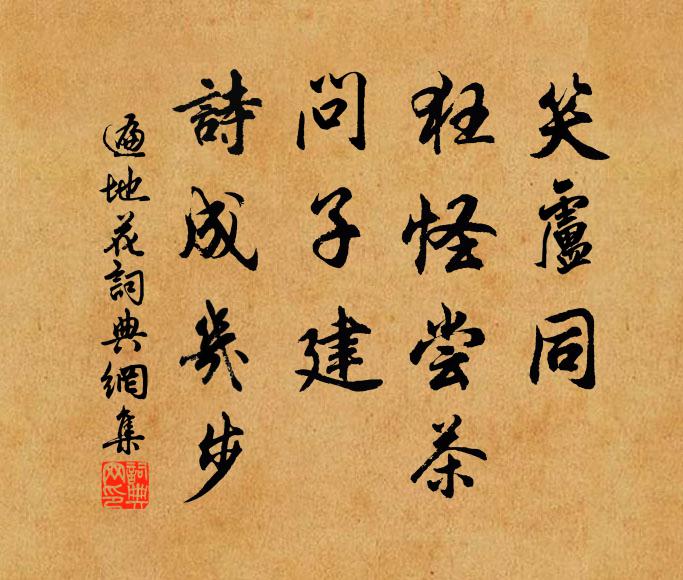 笑盧同
狂怪尝茶
問子建
詩成幾步
遍地花詞典網集
詞典
网印